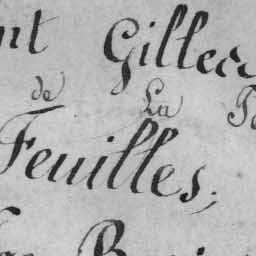 nt Gilles
de La
Feuilles;